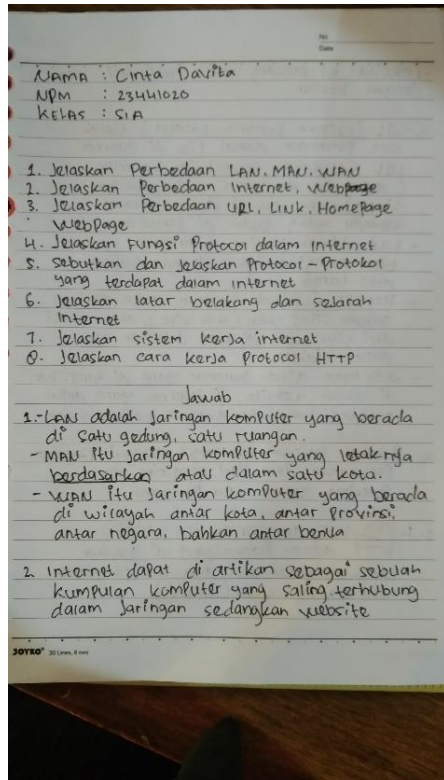 No
Date
NAMA : Cinta Davita
NPM : 23441020
KELAS : SIA
1. Jelaskan Perbedaan LAN, MAN, WAN
2. Jelaskan Perbedaan Internet, Webpage
3. Jelaskan Perbedaan URL, Link, Homepage
Webpage
4. Jelaskan Fungsi Protocol dalam internet
5. Sebutkan dan jelaskan Protocol - Protokol
yang terdapat dalam internet
6. Jelaskan latar belakang dan selarah
Internet
7. Jelaskan sistem kerja internet
8. Jelaskan cara kerja Protocol HTTP
Jawab
1.- LAN adalah Jaringan komputer yang berada
di satu gedung, satu ruangan.
- MAN itu Jaringan komputer yang letaknya
berdasarkan atau dalam satu kota.
- WAN itu Jaringan komputer yang berada
di wilayah antar kota, antar Provinsi,
antar negara, bahkan antar benua
2. Internet dapat di artikan sebagai sebuah
kumpulan komputer yang saling terhubung
dalam Jaringan sedangkan website
JOYKO 30 Lines, 8 mm